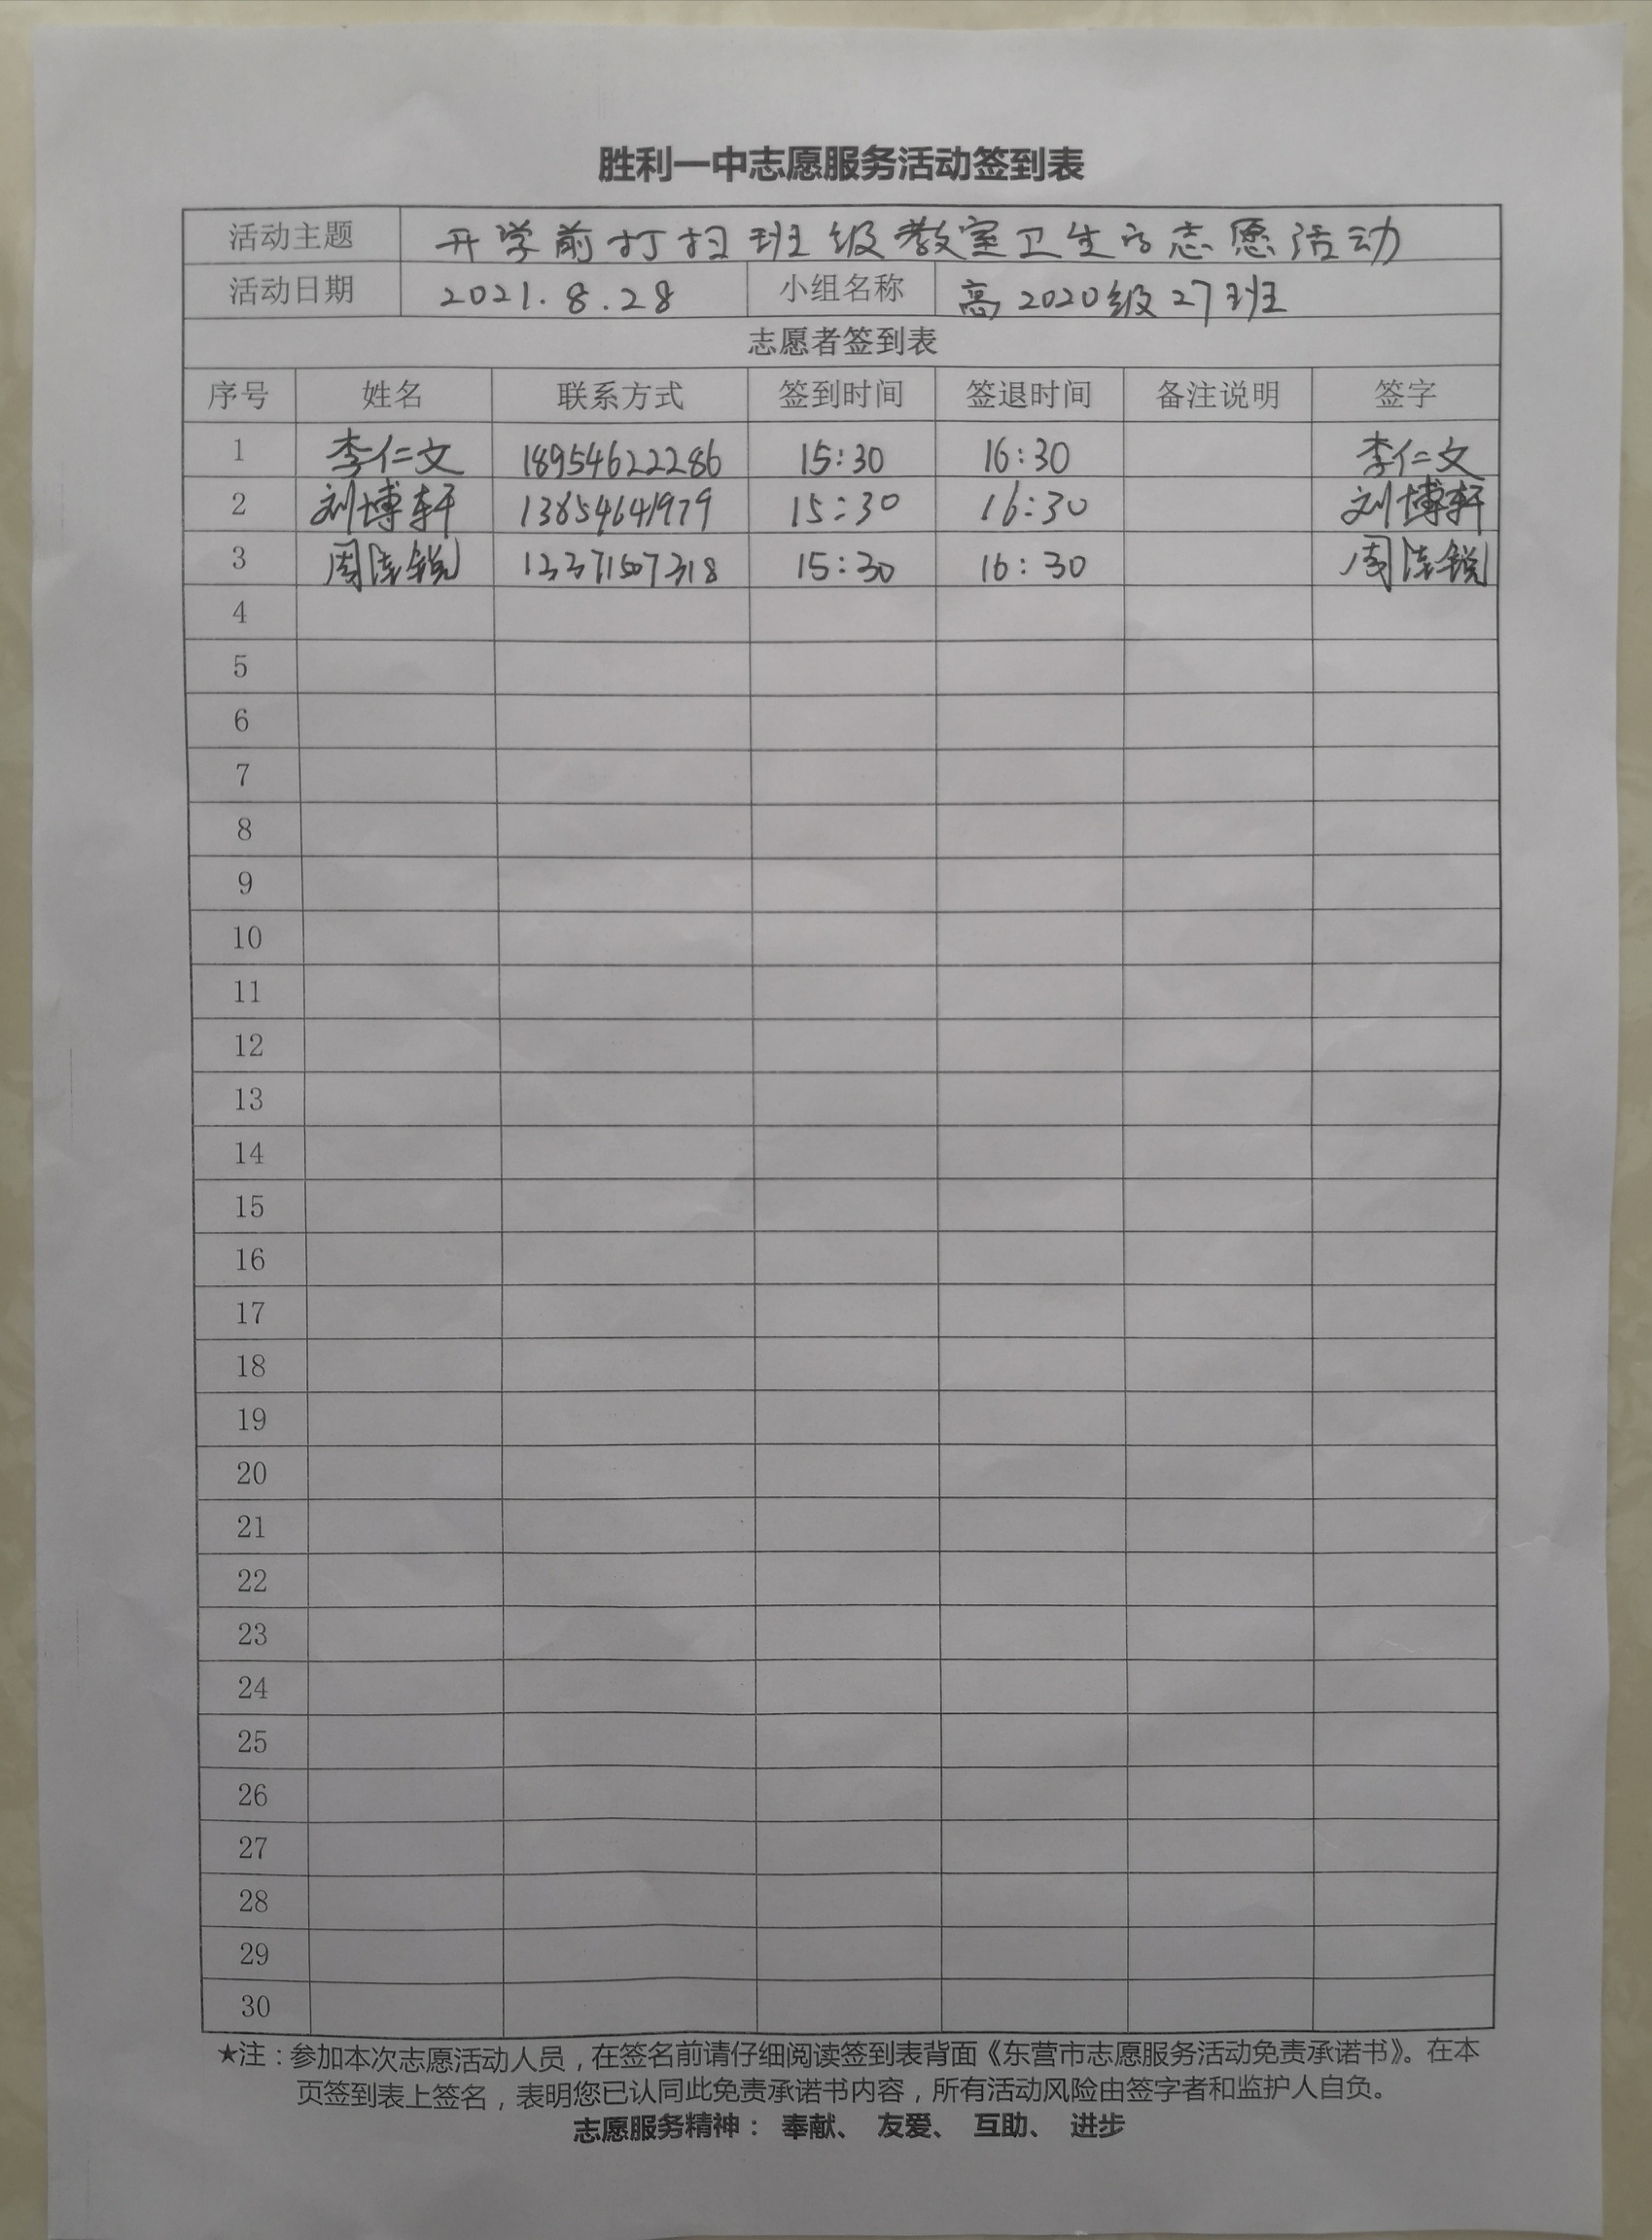 胜利一中志愿服务活动签到表
活动主题 开学前打扫班级教室卫生的志愿活动
活动日期 2021.8.28 小组名称 高2020级27班
志愿者签到表
序号 姓名 联系方式 签到时间 签退时间 备注说明 签字
1 李仁文 18954622286 15:30 16:30 李仁文
2 刘博轩 13854641979 15:30 16:30 刘博轩
3 周 锐 13371507318 15:30 16:30 周 锐
4
5
6
7
8
9
10
11
12
13
14
15
16
17
18
19
20
21
22
23
24
25
26
27
28
29
30
★注：参加本次志愿活动人员，在签名前请仔细阅读签到表背面《东营市志愿服务活动免责承诺书》。在本
页签到表上签名，表明您已认同此免责承诺书内容，所有活动风险由签字者和监护人自负。
志愿服务精神： 奉献、 友爱、 互助、 进步